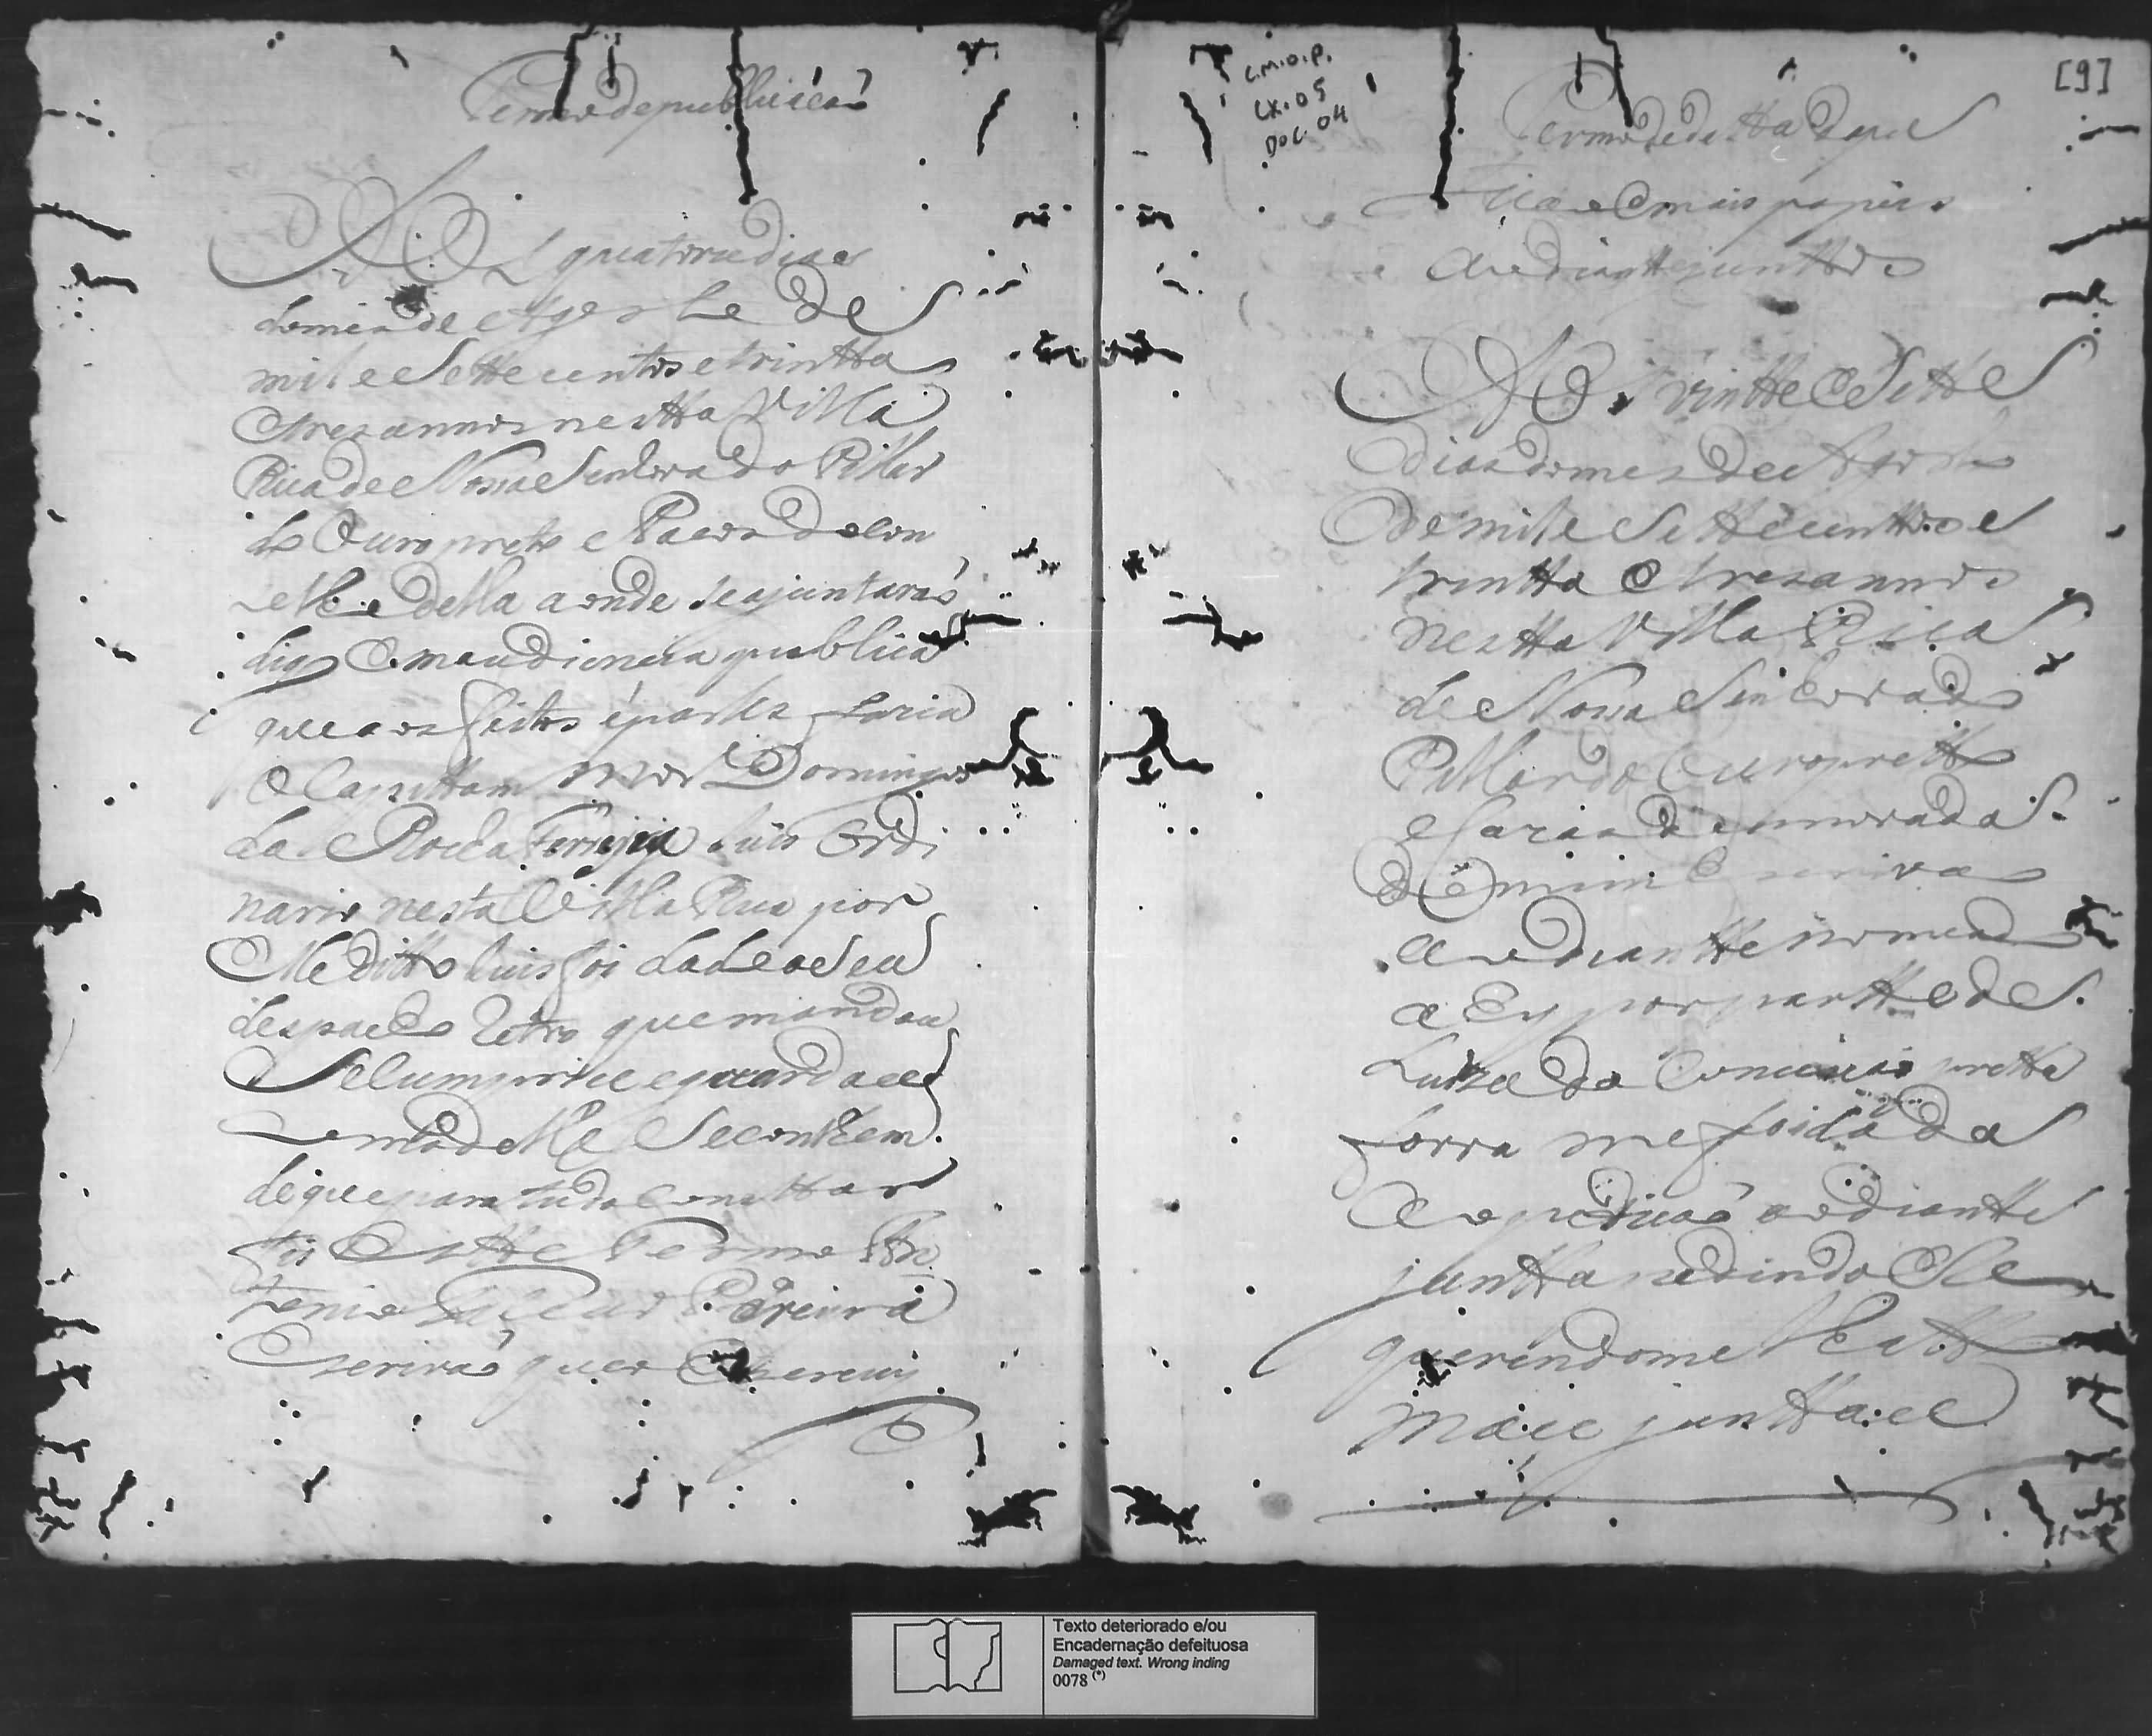 Termo de publicacaó
Aos quatorze dias
do mes de Agosto de
mil e Sette centos e trintta
e tres annos nestta Villa
Rica de Nossa Senhora do Pillar
do Ouro pretto e Passos do Con
selho della aonde se ajuntaraó
digo Em audiencia publica
que aos feitos e partes fazia
o Capittam mor Domingos
da Rocha Ferreira Juis Ordi
nario nesta Villa Rica por
elle ditto Juis foi dado o seu
despacho retro que mandou
Se cumprice e guardace
como nelle Se conthem
de que para tudo consttar
fis Estte Termo
Pereira
Escrivaó que o Escrevy
C.M.O.P.
CX. 05
DOC. 04
[9]
Termo de datta da
e mais papeis
ao diantte junttos
Aos vintte e Sette
dias do mes de Agosto
de mil e Sette centtos e
trintta e tres annos
nestta Villa Rica
de Nossa Senhora do
Pillar do Ouro pretto
e Cazas de morada
de mim Escrivaó
ao diantte nomeado
e Ey por partte de
Luiza da Conceicaó pretta
forra me foi dada
a petticaó ao diantte
juntta pedindo e Re
querendome lha tto
mace juntta ce
Texto deteriorado e/ou
Encadernação defeituosa
Damaged text. Wrong inding
0078 (*)